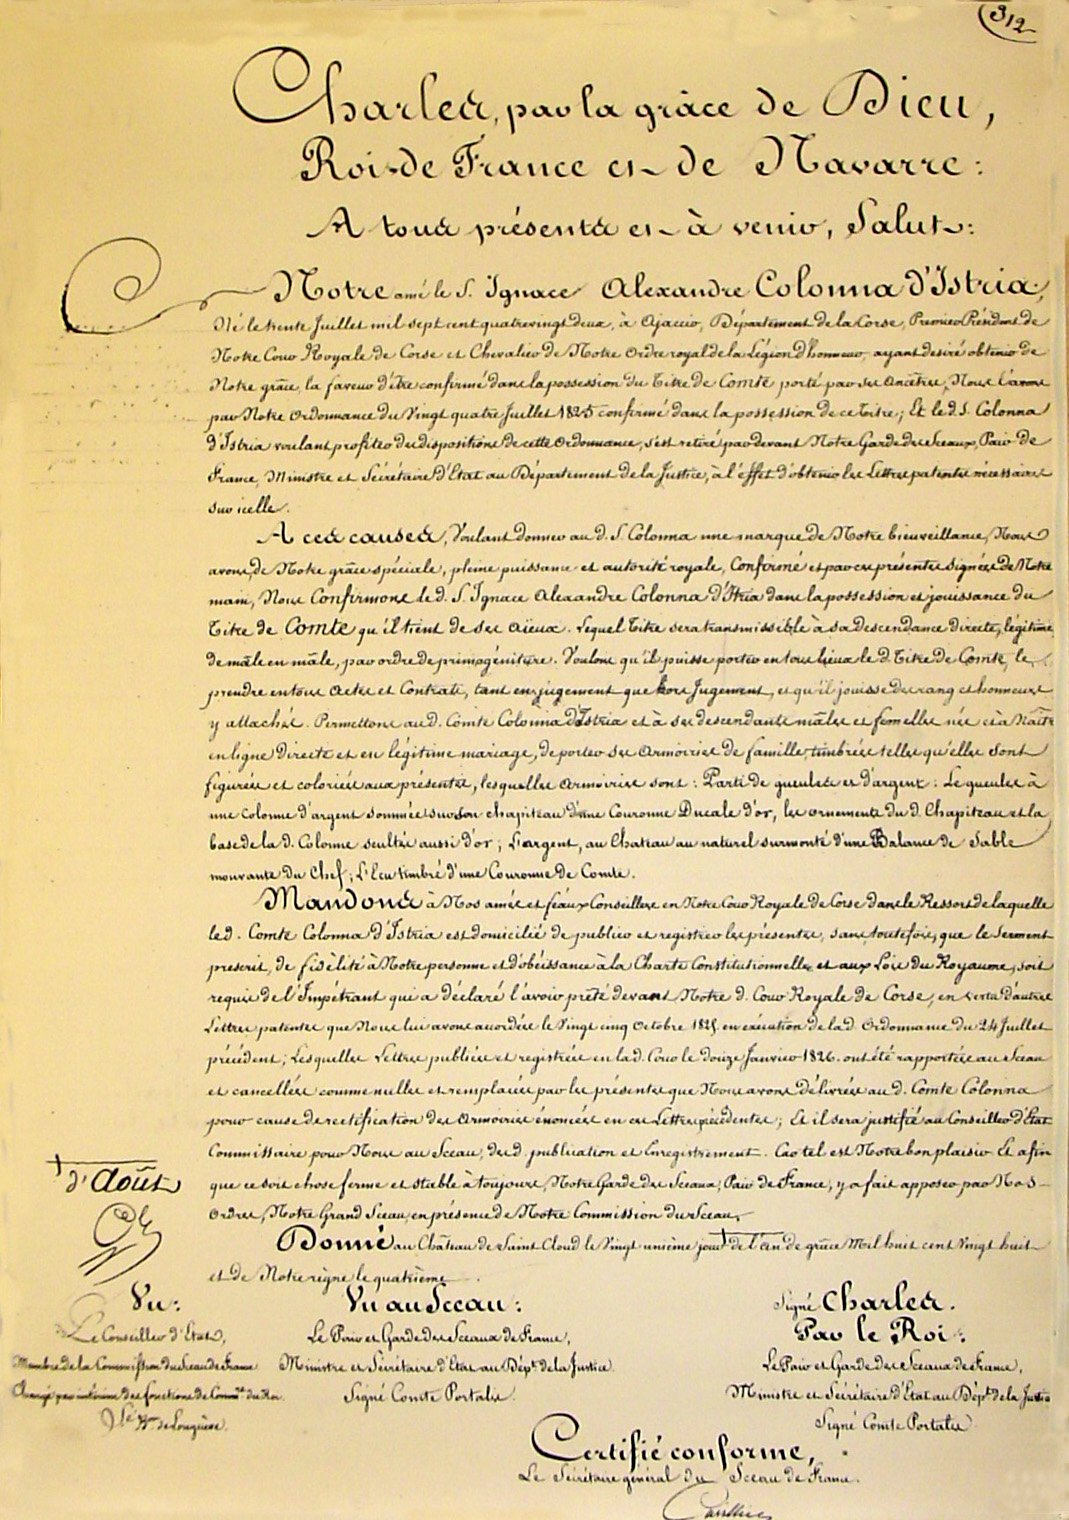 312
Charles, par la grâce de Dieu,
Roi de France et de Navarre :
A tous présents et à venir, Salut :
Notre amé le S. Ignace Alexandre Colonna d'Istria,
Né le trente Juillet mil sept cent quatrevingt deux, à Ajaccio, Département de la Corse, Premier Président de
Notre Cour Royale de Corse et Chevalier de Notre Ordre royal de la Légion d'honneur, ayant desiré obtenir de
Notre grâce, la faveur d'être confirmé dans la possession du Titre de Comte porté par ses Ancêtres, Nous l'avons
par Notre Ordonnance du Vingt quatre Juillet 1825 confirmé dans la possession de ce Titre ; Et le d. S. Colonna
d'Istria voulant profiter des dispositions de cette Ordonnance, s'est retiré pardevant Notre Garde des Sceaux, Pair de
France, Ministre et Sécrétaire d'Etat au Département de la Justice, à l'effet d'obtenir les Lettres patentes nécessaires
sur icelle.
A ces causes, Voulant donner au d. S. Colonna une marque de Notre bienveillance, Nous
avons, de Notre grâce spéciale, pleine puissance et autorité royale, Confirmé et par ces présentes signées de Notre
main, Nous Confirmons le d. S. Ignace Alexandre Colonna d'Istria dans la possession et jouissance du
Titre de Comte qu'il tient de ses aïeux. Lequel Titre sera transmissible à sa descendance directe, légitime
de mâle en mâle, par ordre de primogéniture. Voulons qu'il puisse porter en tous lieux le d. Titre de Comte, le
prendre en tous Actes et Contrats, tant en jugement que hors Jugement, et qu'il jouisse des rang et honneurs
y attachés. Permettons au d. Comte Colonna d'Istria et à ses descendants mâles et femelles nés et à Naître
en ligne directe et en légitime mariage, de porter ses Armoiries de famille timbrées telles qu'elles sont
figurées et coloriées aux présentes, lesquelles Armoiries sont : Parti de gueules et d'argent : Le gueules à
une colonne d'argent sommée sur son chapiteau d'une Couronne Ducale d'or, les ornements du d. Chapiteau et la
base de la d. Colonne scultés aussi d'or ; L'argent, au Chateau au naturel surmonté d'une Balance de Sable
mouvante du Chef ; L'Ecu timbré d'une Couronne de Comte.
Mandons à Nos amés et féaux Conseillers en Notre Cour Royale de Corse dans le Ressort de laquelle
le d. Comte Colonna d'Istria est domicilié de publier et registrer les présentes, sans toutefois, que le Serment
prescrit, de fidélité à Notre personne et d'obéissance à la Charte Constitutionnelle et aux Lois du Royaume, soit
requis de l'Impétrant qui a déclaré l'avoir prêté devant Notre d. Cour Royale de Corse, en vertu d'autres
Lettres patentes que Nous lui avons accordées le Vingt cinq Octobre 1825 en exécution de la d. Ordonnance du 24 Juillet
précédent ; Lesquelles Lettres publiées et registrées en la d. Cour le douze Janvier 1826. ont été rapportées au Sceau
et cancellées comme nulles et remplacées par les présentes que Nous avons délivrées au d. Comte Colonna
pour cause de rectification des Armoiries énoncées en ces Lettres précédentes ; Et il sera justifié au Conseiller d'Etat
Commissaire pour Nous au Sceau, des d. publication et Enregistrement. Car tel est Notre bon plaisir. Et afin
que ce soit chose ferme et stable à toujours, Notre Garde des Sceaux, Pair de France, y a fait apposer par Nos
Ordres, Notre Grand Sceau, en présence de Notre Commission du Sceau.
d'Août
Donné au Château de Saint Cloud le Vingt unième jour de l'an de grâce Mil huit cent Vingt huit
et de Notre règne le quatrième.
Vu :
Le Conseiller d'Etat,
Membre de la Commission du Sceau de France
Chargé par intérim des fonctions de Comm.re du Roi
Vu au Sceau :
Le Pair et Garde des Sceaux de France,
Ministre et Sécrétaire d'Etat au Dép.t de la Justice
Signé Comte Portalis
Signé Charles.
Par le Roi :
Le Pair et Garde des Sceaux de France,
Ministre et Sécrétaire d'Etat au Dép.t de la Justice
Signé Comte Portalis
Certifié conforme,
Le Sécrétaire général du Sceau de France.